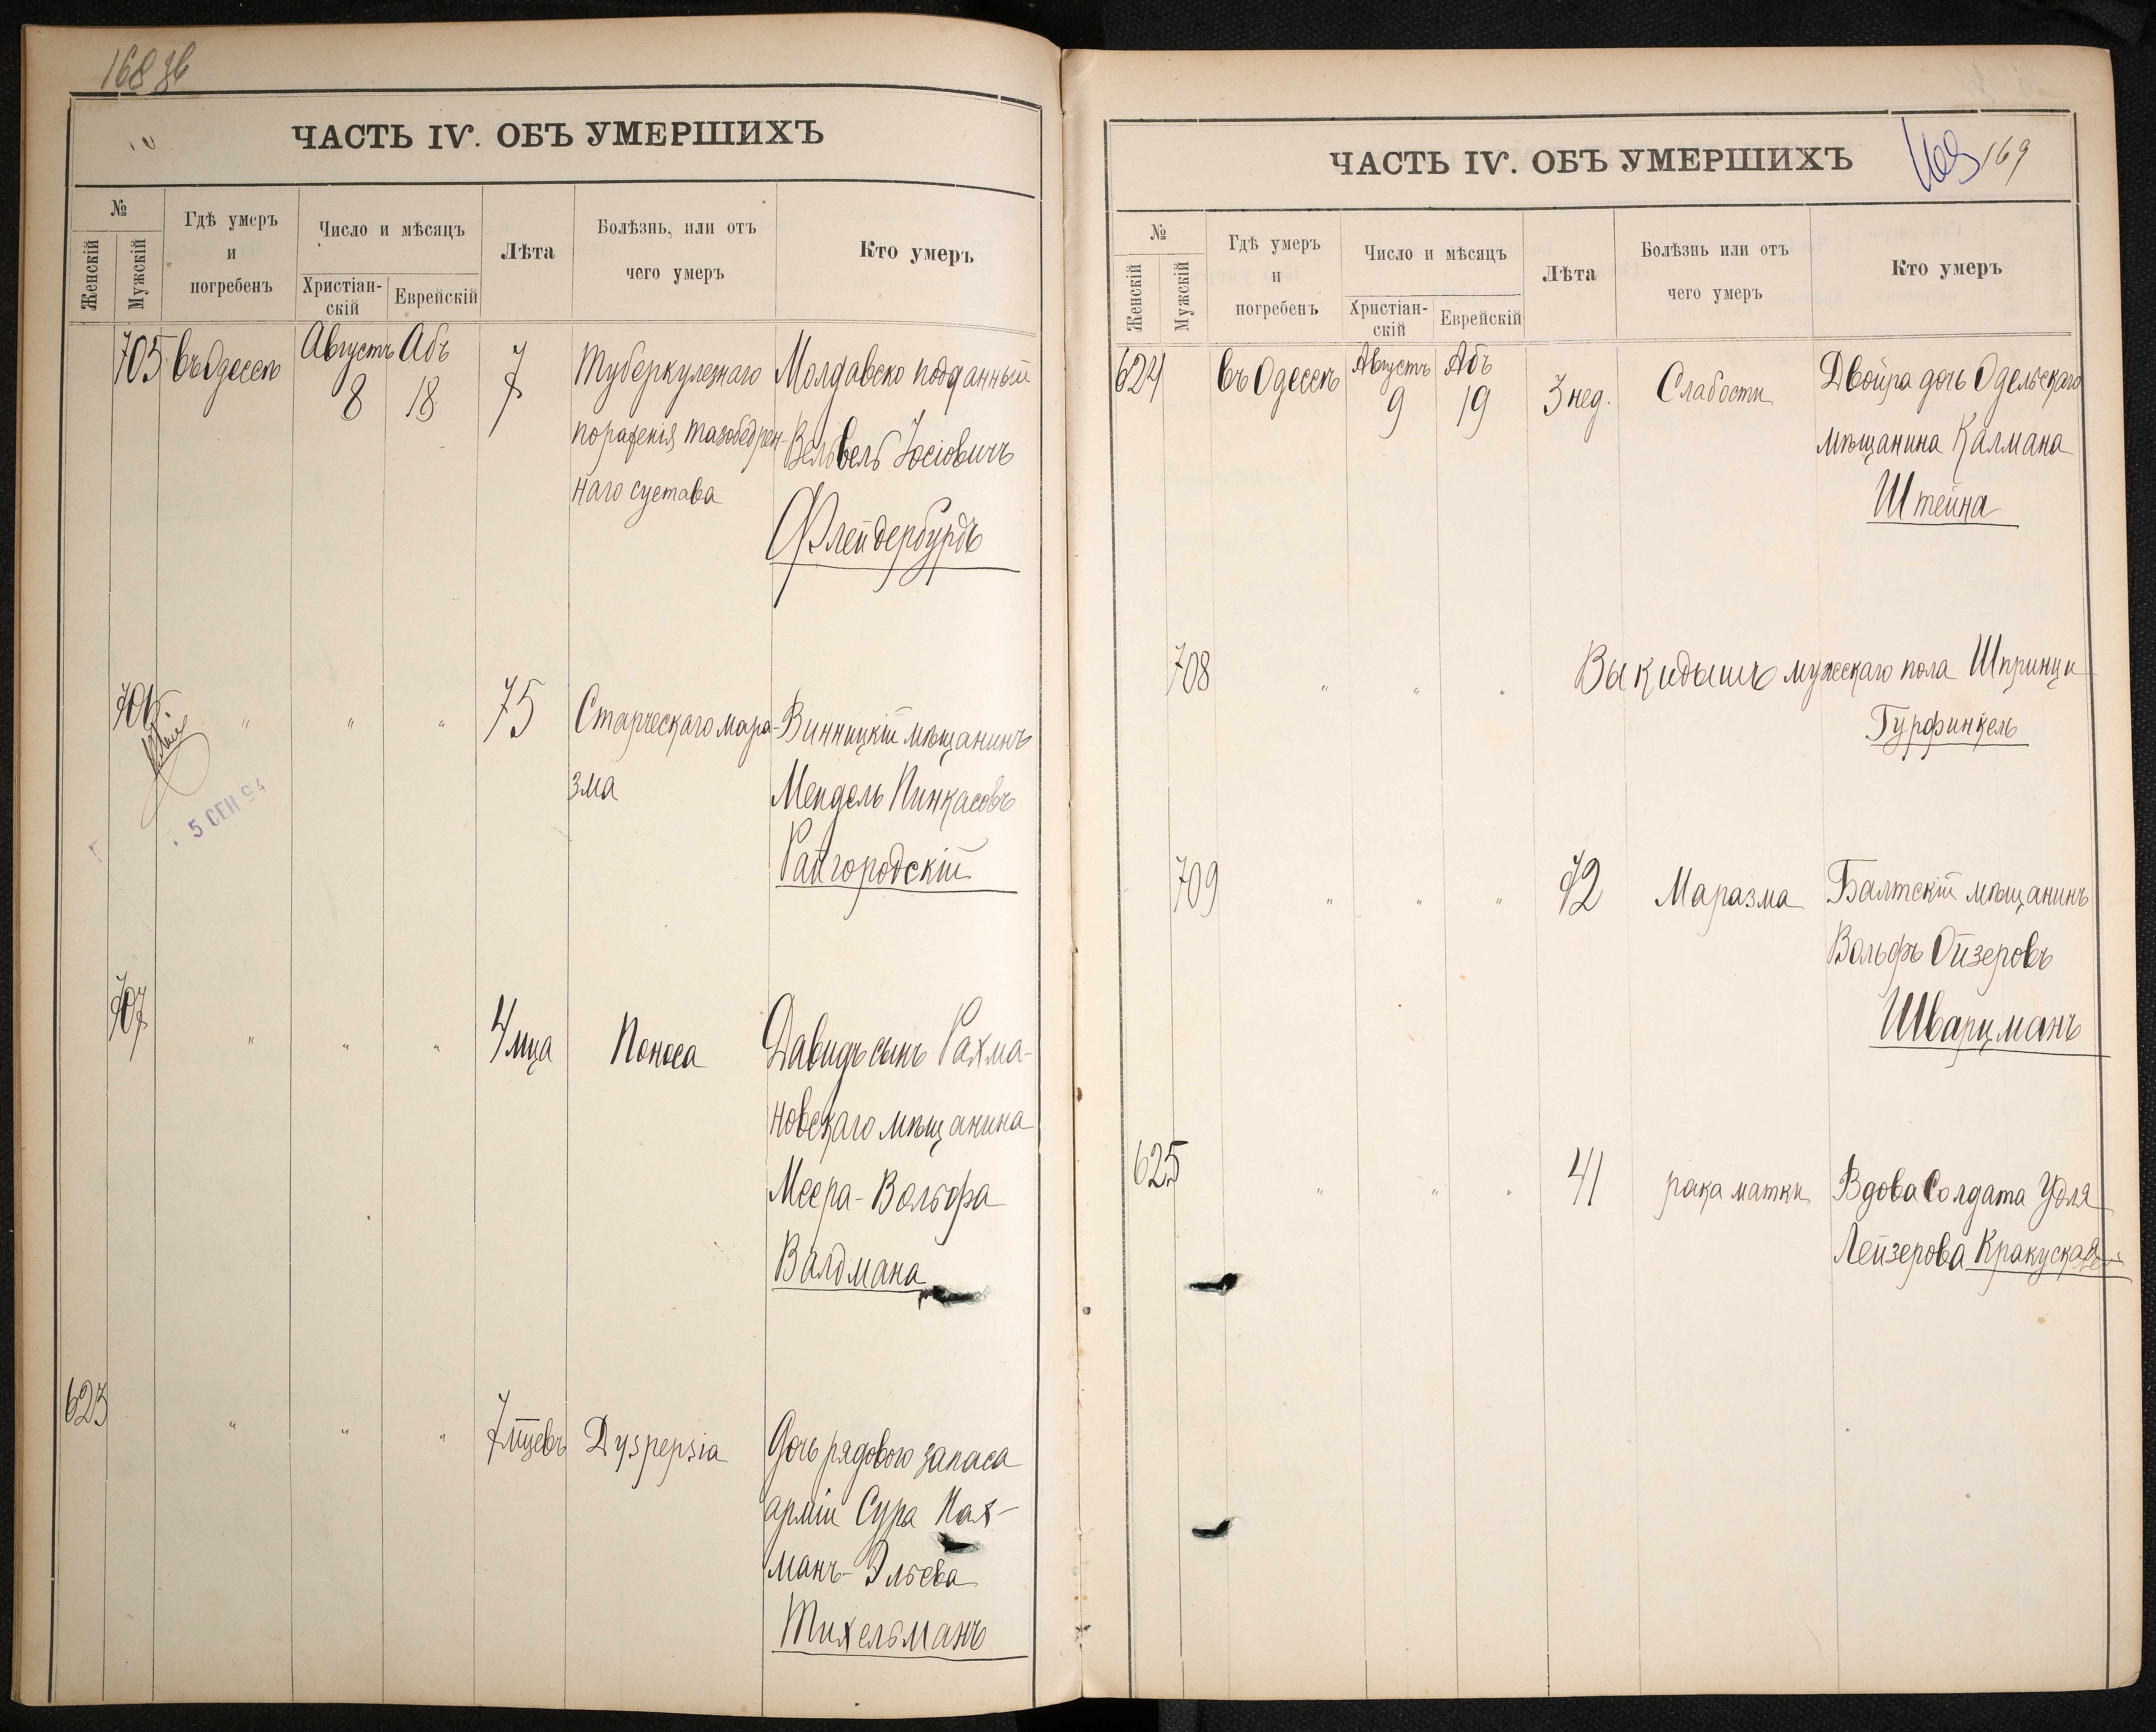 168 зв
ЧАСТЬ IV. ОБЪ УМЕРШИХЪ
№
Женскій
Мужскій
Гдѣ умеръ
и
погребенъ
Число и мѣсяцъ
Христіан-
скій
Еврейскій
Лѣта
Болѣзнь, или отъ
чего умеръ
Кто умеръ
705 въ Одессѣ Августъ 8 Абъ 18 7 Туберкулезнаго Молдавско подданный
пораженія тазобедрен- Вельвель Іосіовичъ
наго сустава
Флейдербурдъ
706 " " " 75 Старческаго мара- Винницкій мѣщанинъ
зма Мендель Пинкасовъ
5 СЕН 94
Райгородскій
707 " " " 4 мца Поноса Давидъ сынъ Рахма-
новскаго мѣщанина
Меера-Вольфа
Валдмана
623 " " " 7 мцевъ Dyspepsia Дочь рядового запаса
арміи Сура Нах-
манъ-Эльева
Тихельманъ
169 169
ЧАСТЬ IV. ОБЪ УМЕРШИХЪ
№
Женскій
Мужскій
Гдѣ умеръ
и
погребенъ
Число и мѣсяцъ
Христіан-
скій
Еврейскій
Лѣта
Болѣзнь или отъ
чего умеръ
Кто умеръ
624 въ Одессѣ Августъ 9 Абъ 19 3 нед. Слабости Двойра дочь Одельскаго
мѣщанина Калмана
Штейна
708 " " " Выкидышъ мужескаго пола Шпринци
Гурфинкель
709 " " " 72 Маразма Балтскій мѣщанинъ
Вольфъ Ойзеровъ
Шварцманъ
625 " " " 41 рака матки Вдова Солдата Удля
Лейзерова